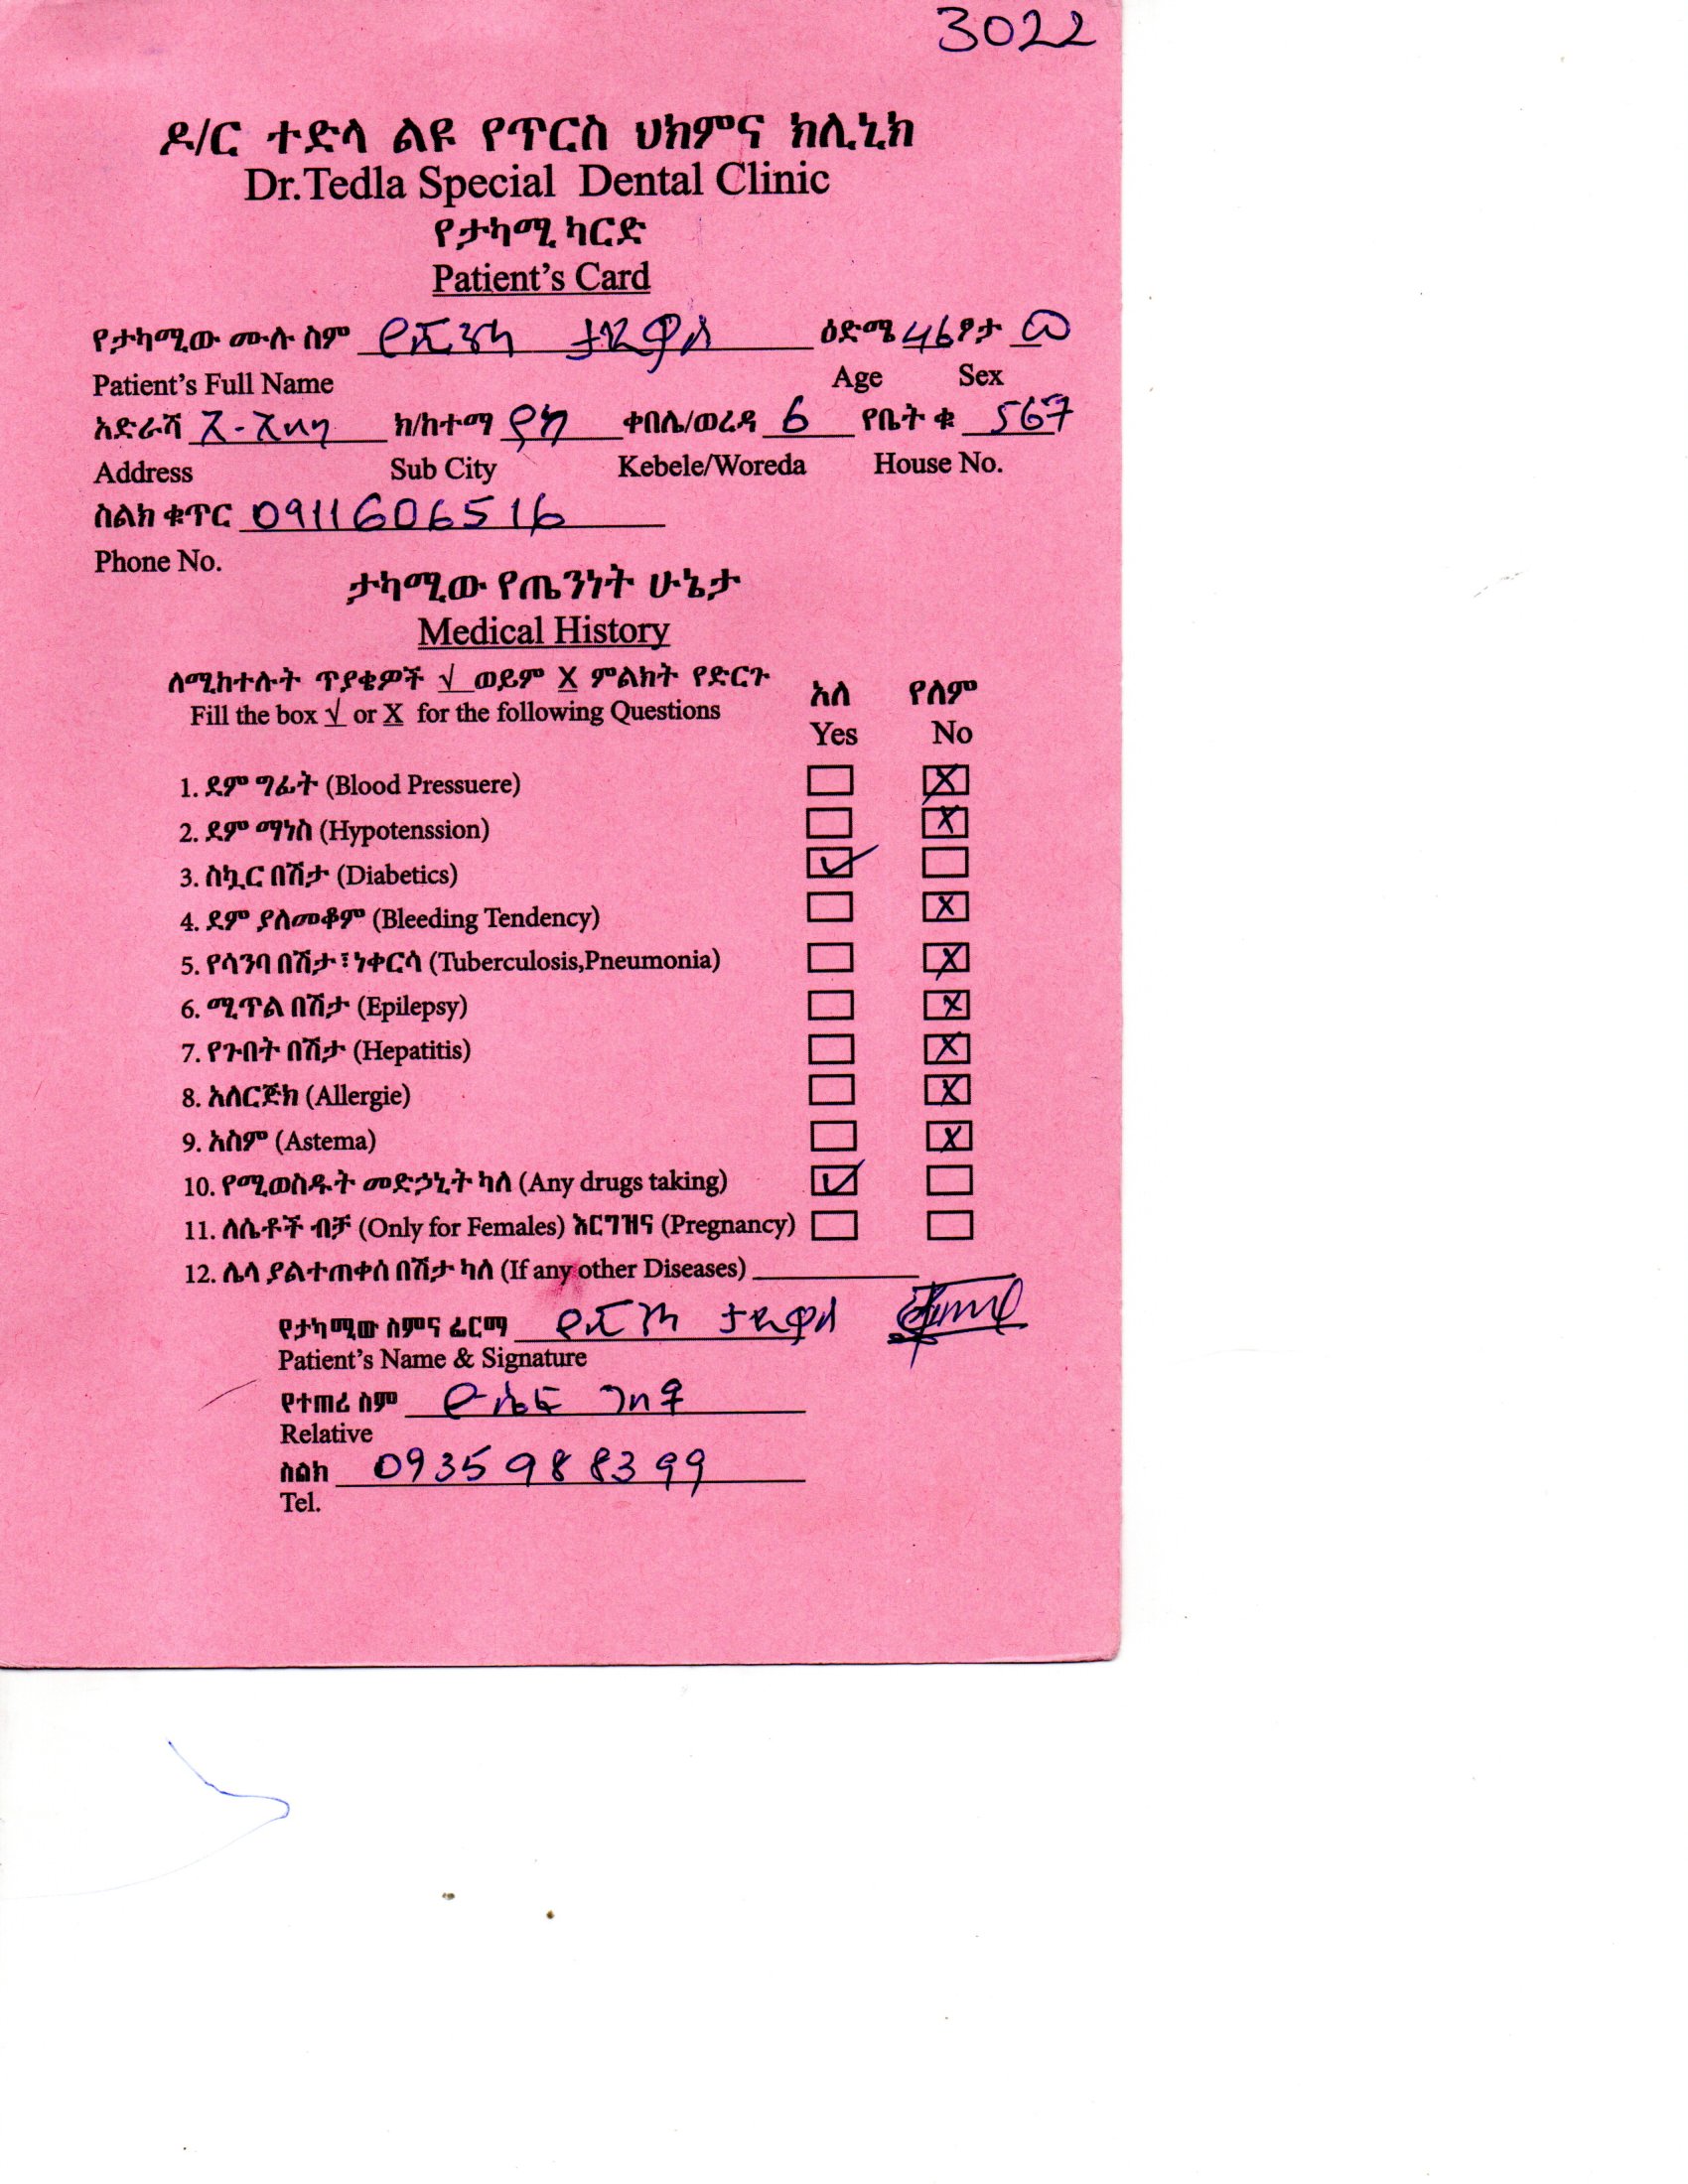 3022
ዶ/ር ተድላ ልዩ የጥርስ ህክምና ክሊኒክ
Dr.Tedla Special Dental Clinic
የታካሚ ካርድ
Patient's Card
የታካሚው ሙሉ ስም ዕድሜ 46 ፆታ ወ
Patient's Full Name Age Sex
አድራሻ አ-አበባ ክ/ከተማ የካ ቀበሌ/ወረዳ 6 የቤት ቁ 567
Address Sub City Kebele/Woreda House No.
ስልክ ቁጥር 0911606516
Phone No.
ታካሚው የጤንነት ሁኔታ
Medical History
ለሚከተሉት ጥያቄዎች √ ወይም X ምልክት የድርጉ አለ የለም
Fill the box √ or X for the following Questions Yes No
1. ደም ግፊት (Blood Pressuere) X
2. ደም ማነስ (Hypotenssion) X
3. ስኳር በሽታ (Diabetics) √
4. ደም ያለመቆም (Bleeding Tendency) X
5. የሳንባ በሽታ፣ነቀርሳ (Tuberculosis,Pneumonia) X
6. ሚጥል በሽታ (Epilepsy) X
7. የጉበት በሽታ (Hepatitis) X
8. አለርጅክ (Allergie) X
9. አስም (Astema) X
10. የሚወስዱት መድኃኒት ካለ (Any drugs taking) √
11. ለሴቶች ብቻ (Only for Females) እርግዝና (Pregnancy)
12. ሌላ ያልተጠቀሰ በሽታ ካለ (If any other Diseases)
የታካሚው ስምና ፊርማ
Patient's Name & Signature
የተጠሪ ስም ዮሴፍ
Relative
ስልክ 0935988399
Tel.